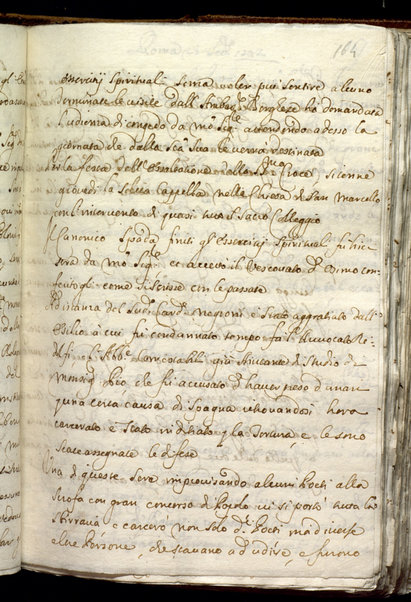 164
essercitij spirituali senza voler più sentire alcuno
Terminate le visite dall' Amb.re Borghese hà domandata
l'udienza di congedo da N.ro Sig.re attendendo adesso la
giornata che dalla S.ta Sua le verrà destinata
Per la festa dell' Esaltazione della S.ma Croce si tenne
giovedì la solita Cappella nella Chiesa di San Marcello
con l'intervento di quasi tutto il Sacro Collegio
Il Canonico Spada finiti gl' essercitij spirituali fù hier
sera da N.ro Sig.re et accettò il Vescovato d'Osimo con-
feritogli come si scrisse con le passate
Ad istanza del Sig.r Card.le Negroni è stato aggratiato dall'
Esilio à cui fù condannato tempo fà l'Avvocato Ro-
l'Abb.e già Aiutante di Studio di
Monsig.r che fù accusato d'haver preso denari
in una certa causa di Spagna ritrovandosi hora
carcerato è stato intimato p la Tortura e le sono
state assegnate le difese
Una di queste sere improvisando alcuni Poeti alla
Scrofa con gran concorso di Popolo vi si portò tutta la
Sbirraria e carcerò non solo d.i Poeti ma diverse
altre Persone, che stavano ad udire, e furono